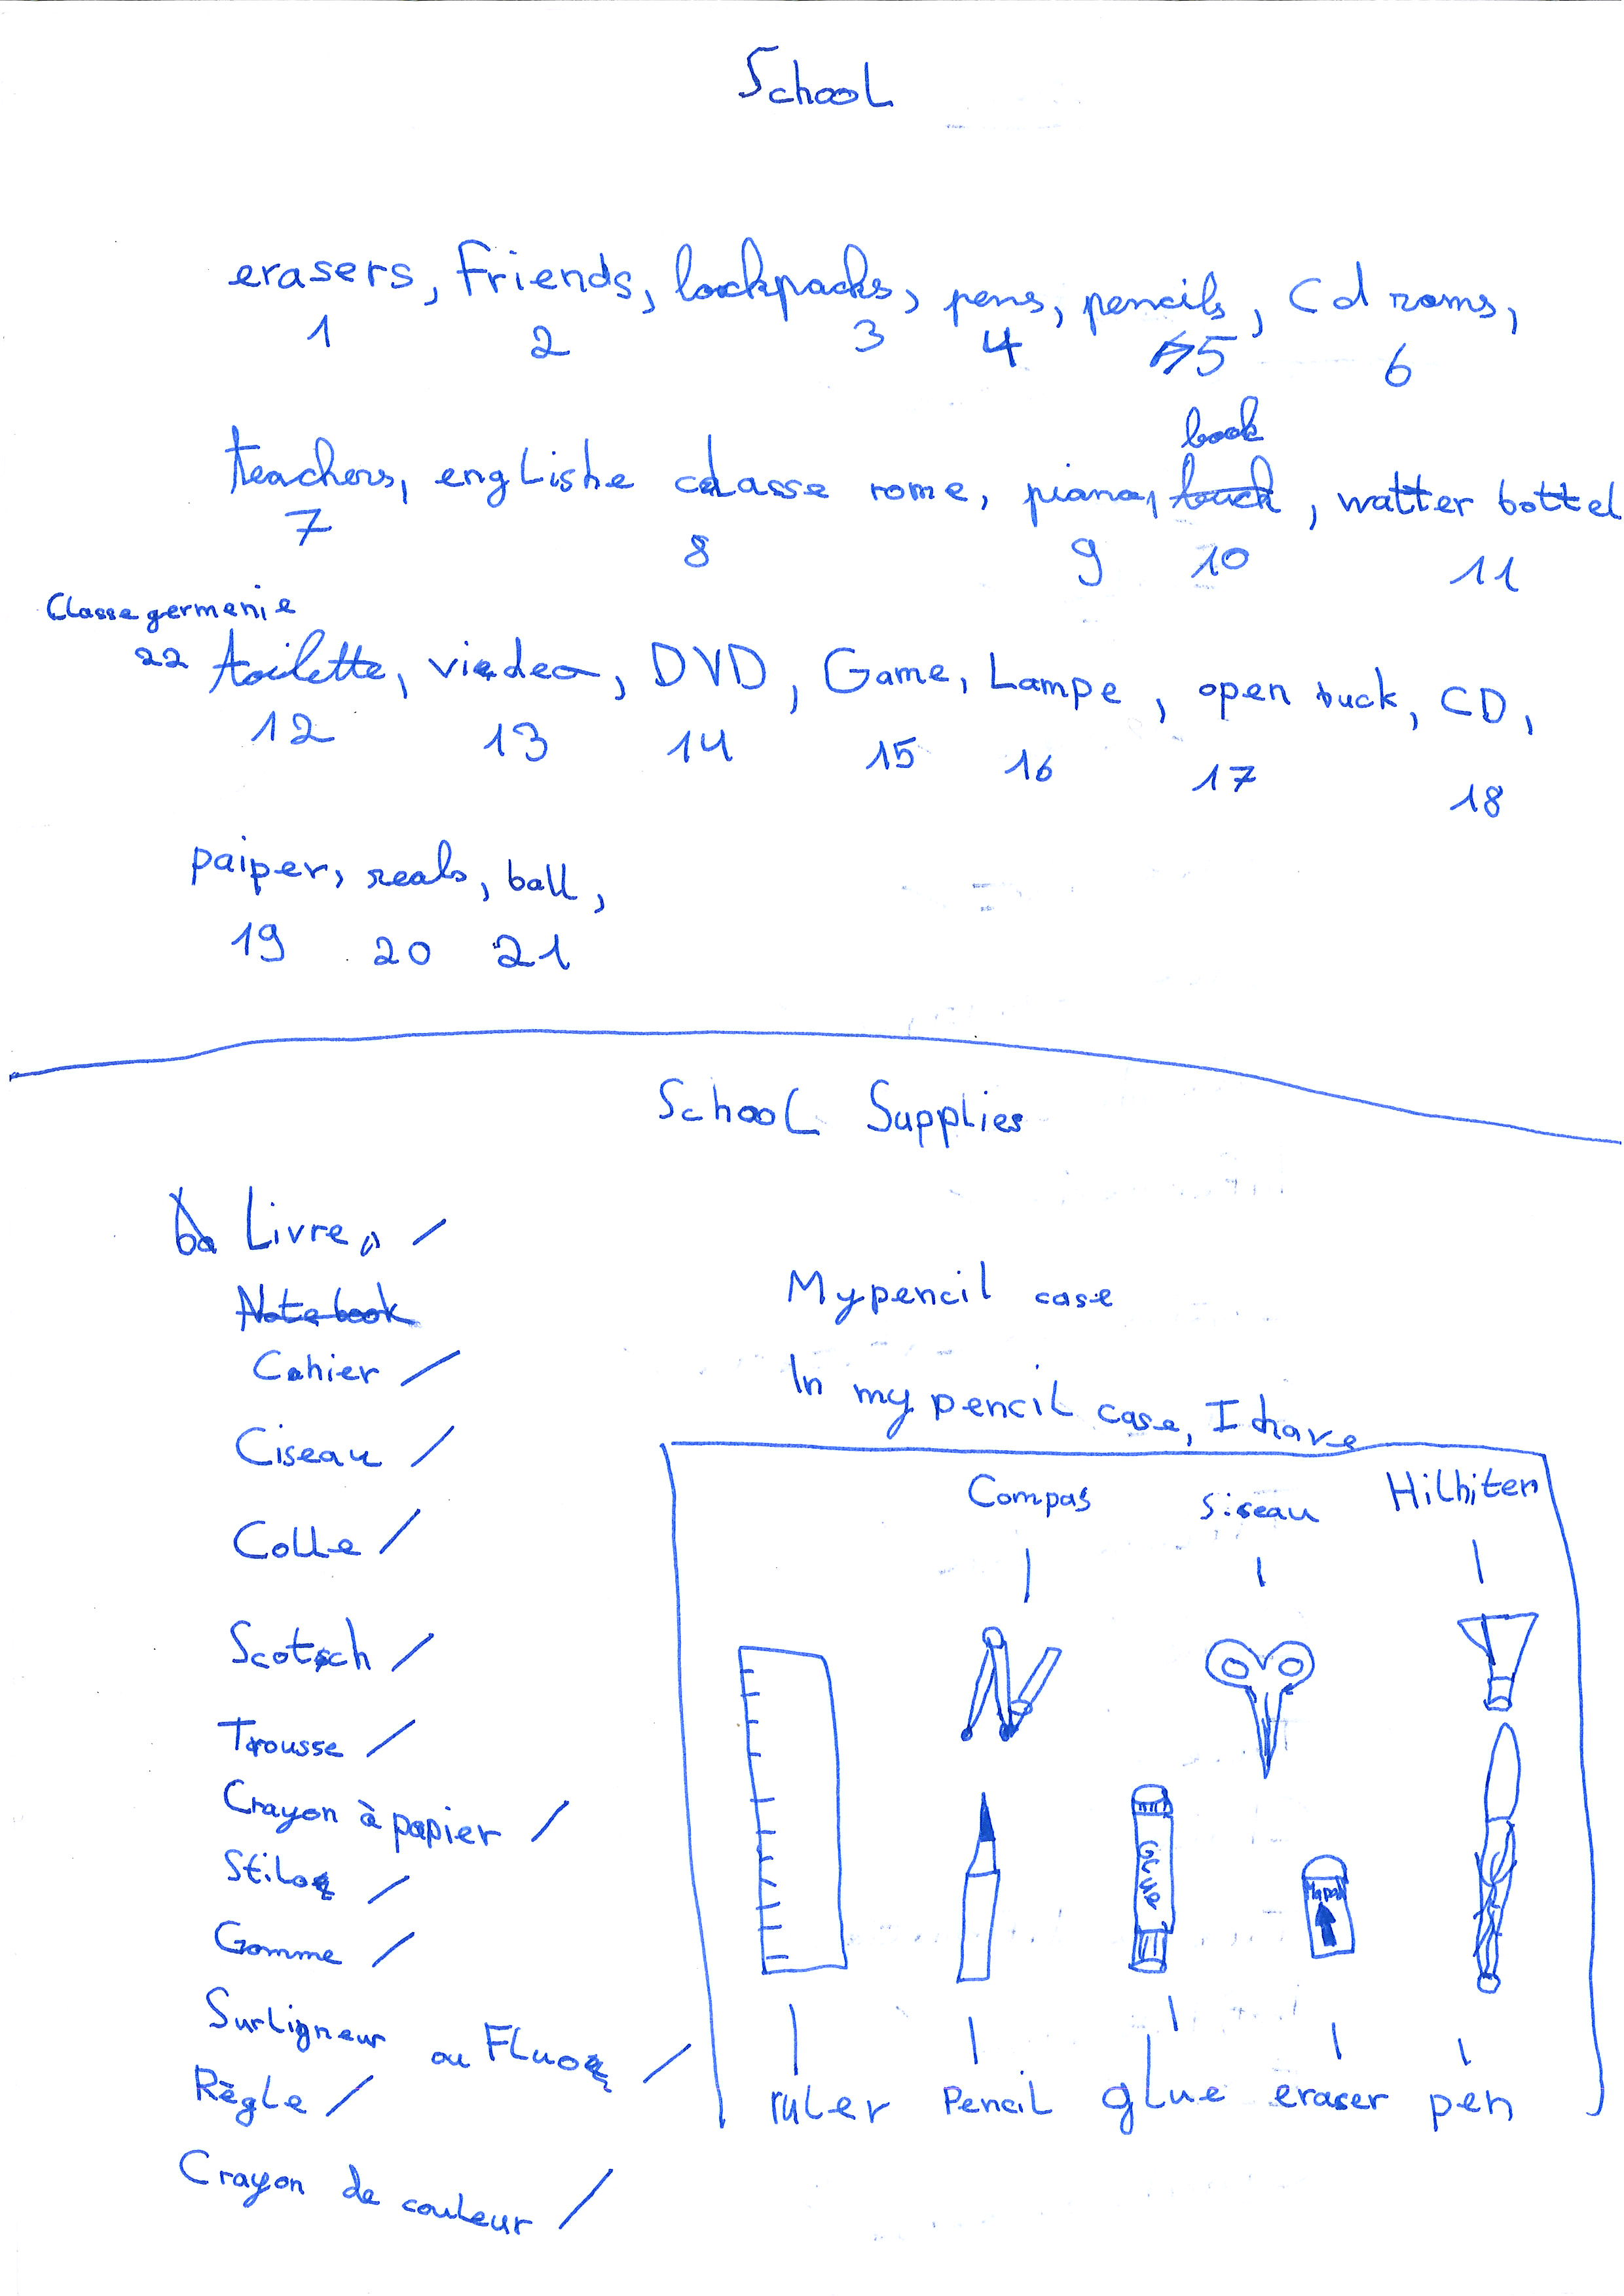 School
erasers, Friends, backpacks, pens, pencils, Cd roms,
1 2 3 4 5 6
book
teachers, englishe classe rome, piano, buck, watter bottel
7 8 9 10 11
Classe germanie
22 toilette, viedeo, DVD, Game, Lampe, open buck, CD,
12 13 14 15 16 17 18
paiper, reals, ball,
19 20 21
School Supplies
ba Livre /
Notebook
Cahier /
Ciseau /
Colle /
Scotsch /
Trousse /
Crayon à papier /
Stilo /
Gomme /
Surligneur ou Fluo /
Règle /
Crayon de couleur /
My pencil case
In my pencil case, I have
Compas Siseau Hilhiter
Glue
ruler Pencil glue eraser pen